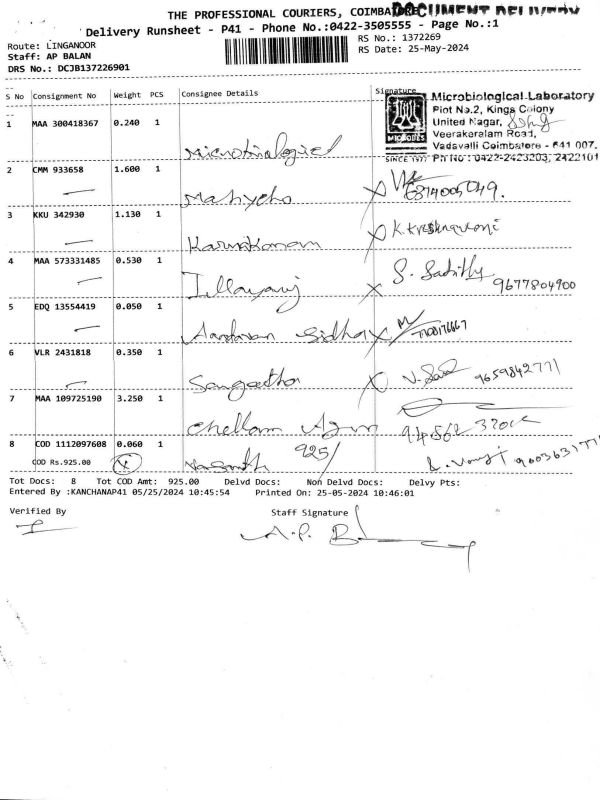 THE PROFESSIONAL COURIERS, COIMBATORE
DOCUMENT DELIVERY
Delivery Runsheet - P41 - Phone No.:0422-3505555 - Page No.:1
Route: LINGANOOR
Staff: AP BALAN
DRS No.: DCJB137226901
RS No.: 1372269
RS Date: 25-May-2024
S No Consignment No Weight PCS Consignee Details Signature
Microbiological Laboratory
Plot No.2, Kings Colony
United Nagar,
Veerakeralam Road,
Vadavalli Coimbatore - 641 007.
Ph No : 0422-2423203, 2422101
SINCE 1977
1 MAA 300418367 0.240 1
2 CMM 933658 1.600 1
3 KKU 342930 1.130 1
4 MAA 573331485 0.530 1 S. 9677804900
5 EDQ 13554419 0.050 1 Aardaran Sidha
6 VLR 2431818 0.350 1 Sangeetha 9659842771
7 MAA 109725190 3.250 1 Chellam
8 COD 1112097608 0.060 1 925/
COD Rs.925.00 X Vasanth
Tot Docs: 8 Tot COD Amt: 925.00 Delvd Docs: Non Delvd Docs: Delvy Pts:
Entered By :KANCHANAP41 05/25/2024 10:45:54 Printed On: 25-05-2024 10:46:01
Verified By Staff Signature
A.P. B